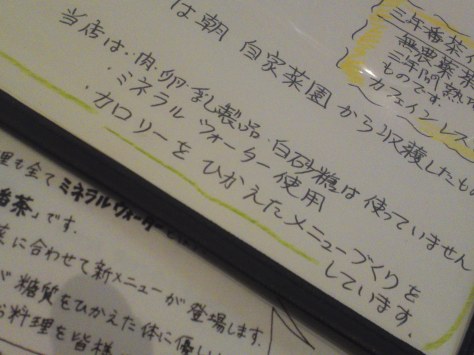 三年番茶
無農薬茶
三年間熱
ものです。
カフェインレス
は朝 自家菜園から収穫したも
当店は・肉・卵・乳製品・白砂糖は使っていません
・ミネラルウォーター使用
・カロリーをひかえたメニューづくりを
しています。
全て ミネラルウォーター
番茶」です。
に合わせて新メニューが登場します。
糖質をひかえた体に優し
お料理を皆様